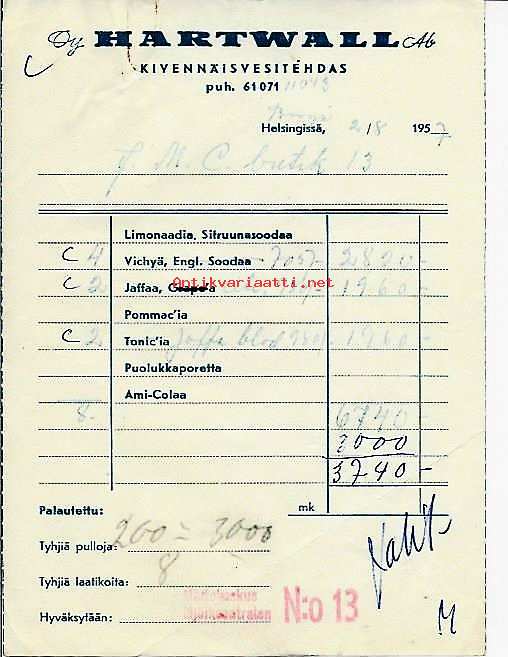 Oy HARTWALL Ab
KIVENNÄISVESITEHDAS
puh. 61071
Helsingissä, 2/8 1957
M. C. butik 13
Limonaadia, Sitruunasoodaa
C 4 Vichyä, Engl. Soodaa 705- 2820-
C 2 Jaffaa, Grape'a 1960-
Antikvariaatti.net
Pommac'ia
C 2 Tonic'ia Jaffa blod 980 1960-
Puolukkaporetta
Ami-Colaa
8- 6740-
3000
3740-
Palautettu: mk
Tyhjiä pulloja: 200 = 3000
Tyhjiä laatikoita: 8 -
Hyväksytään: N:o 13